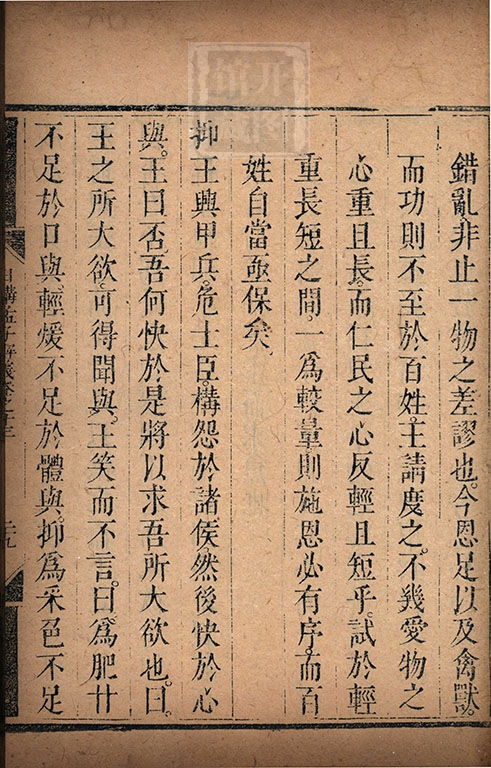 錯亂非止一物之差謬也。今恩足以及禽獸。
而功則不至於百姓。王請度之。不幾愛物之
心重且長。而仁民之心反輕且短乎。試於輕
重長短之間。一爲較量。則施恩必有序。而百
姓自當亟保矣。
抑王興甲兵。危士臣。構怨於諸侯。然後快於心
與。王曰否。吾何快於是。將以求吾所大欲也。曰。
王之所大欲。可得聞與。王笑而不言。曰。爲肥甘
不足於口與。輕煖不足於體與。抑爲采色不足
日講孟子解義卷之十三